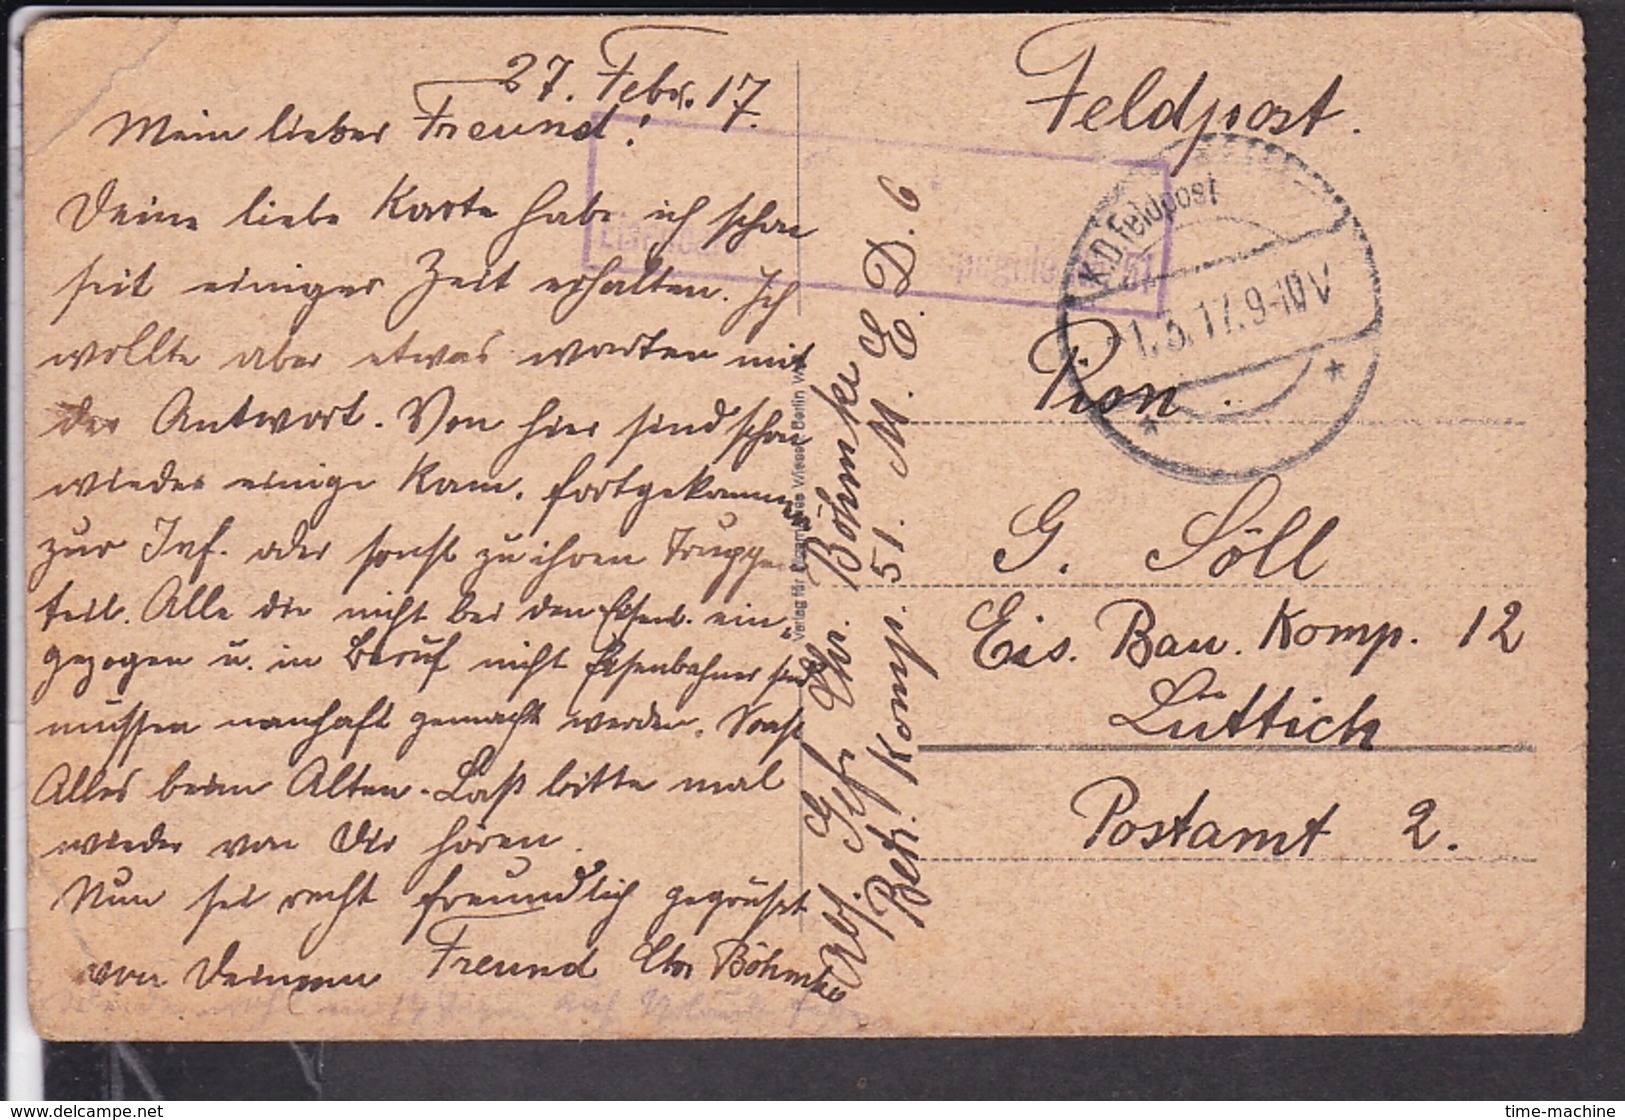 27. Febr. 17.
Mein lieber Freund!
Deine liebe Karte habe ich schon
seit einiger Zeit erhalten. Ich
wollte aber etwas warten mit
der Antwort. Von hier sind schon
wieder einige Kam. fortgekommen
zur Inf. oder sonst zu ihren Truppen
teil. Alle die nicht bei den Eisenb. ein-
gezogen u. in Beruf nicht Eisenbahner sind
müssen namhaft gemacht werden. Sonst
Alles beim Alten. Laß bitte mal
wieder von Dir hören.
Nun sei recht freundlich gegrüßt
von Deinem Freund Chr Böhmke
Verlag für Wiese, Berlin W.
Abs. Gefr. Chr. Böhmke
Betr. Komp. 51. M. E. D. 6
Feldpost.
K.D. Feldpost
1.3.17.9-10V
Pion.
G. Söll
Eis. Bau. Komp. 12
Lüttich
Postamt 2.
www.delcampe.net
time-machine